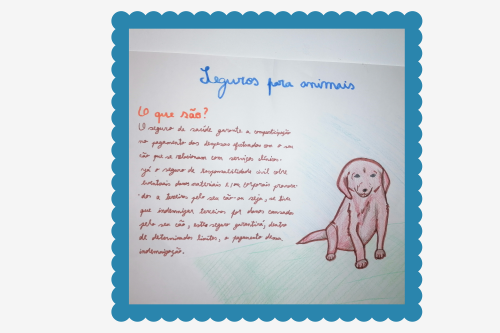 Seguros para animais
O que são?
O seguro de saúde garante a comparticipação
no pagamento das despesas efetuadas com o seu
cão que se relacionam com serviços clínicos.
Já o seguro de responsabilidade civil cobre
eventuais danos materiais e/ou corporais provoca-
dos a terceiros pelo seu cão ou seja, se tiver
que indemnizar terceiros por danos causados
pelo seu cão, este seguro garantirá, dentro
de determinados limites, o pagamento dessa
indemnização.